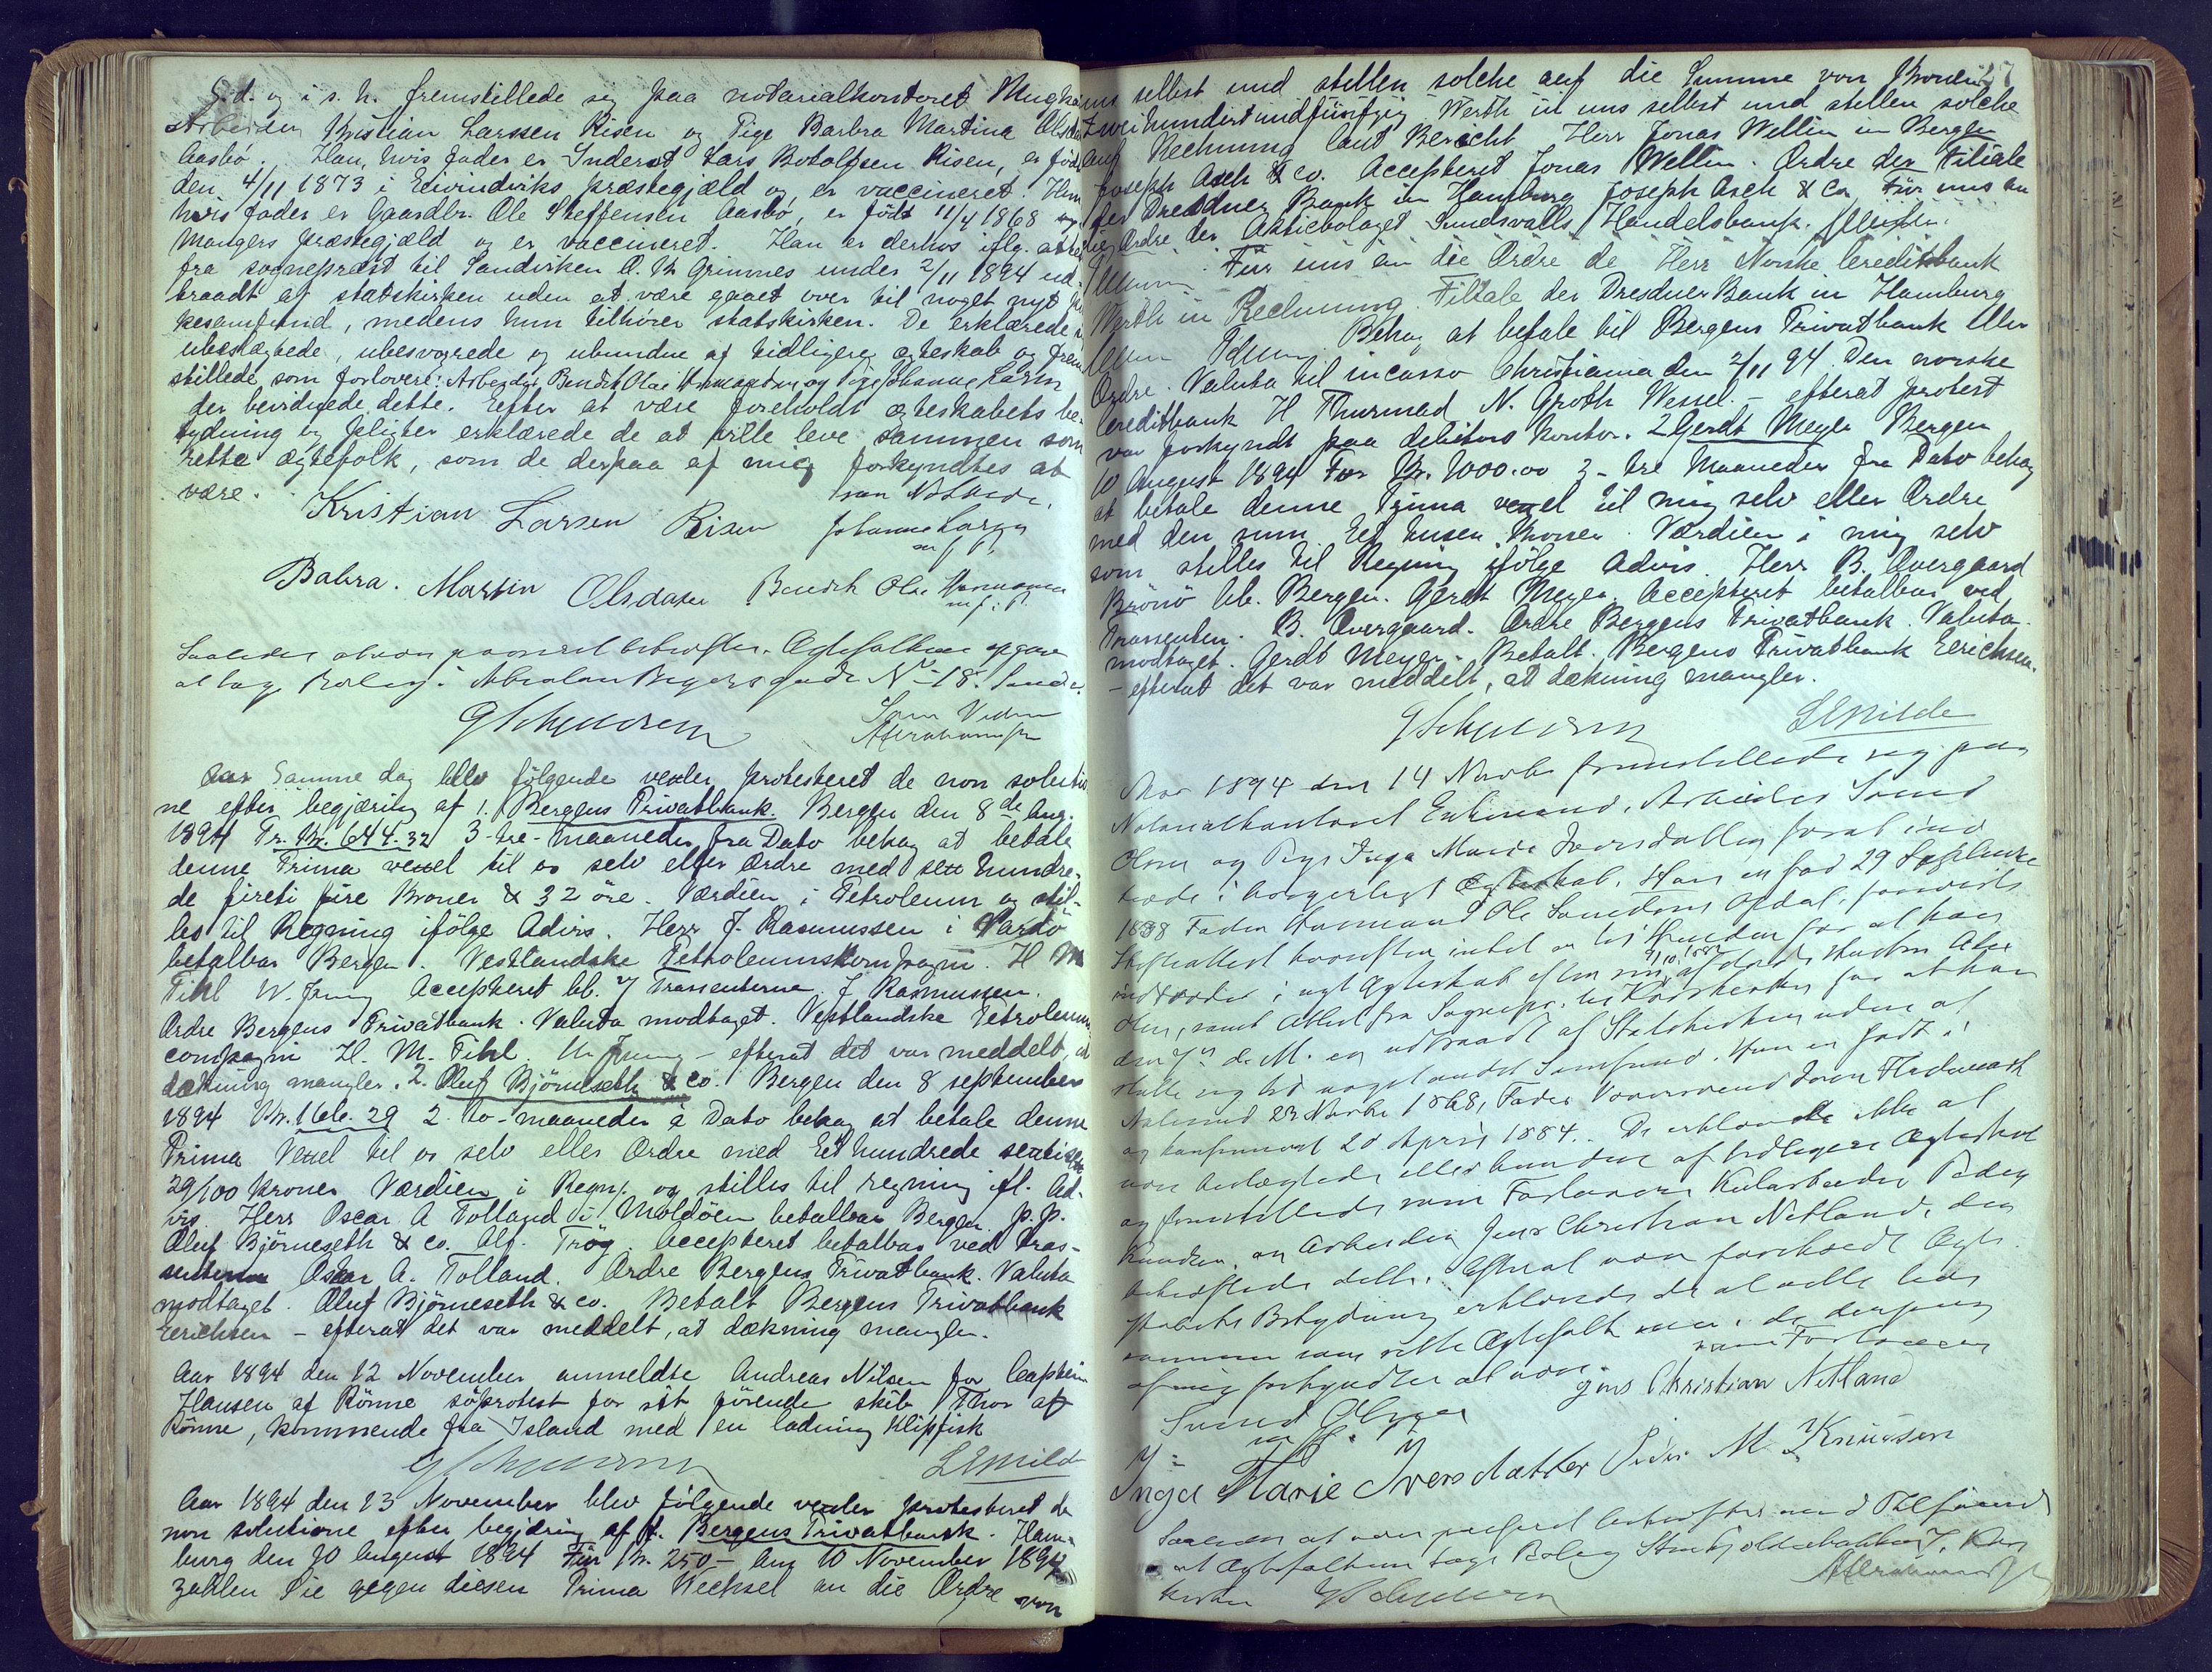 S. d. og i s. h. fremstillede sig paa notarialkontoret
Kristian Larssen Risen og Pige Barbra Martina
Aasbø. Han, hvis fader er Inderst Lars Botolfsen Risen, er født
den 4/11 1873 i Eivindviks præstegjæld og er vaccineret. Hun
hvis fader er Gaardbr. Ole Steffensen Aasbø, er født 11/4 1868
Mangers præstegjæld og er vaccineret. Han er derhos iflg. attest
fra sogneprest til Sandviken O. Grimnes under 2/11 1894 ud-
traadt af statskirken uden at være gaaet over til noget nyt
kesamfund, medens hun tilhører statskirken. De erklærede
ubeslægtede, ubesvogrede og ubundne af tidligere ægteskab og frem
stillede som forlovere: Arbeyder Bendik Olai Hermansen og Pige Johanne Larsen
der bevidnede dette. Eefter at være foreholdt ægteskabets be-
tydning og pligter erklærede de at ville leve sammen som
rette ægtefolk, som de derpaa af mig forkyndtes at
være.
Kristian Larsen Risen Johanne Larsen
Babra. Martin Olsdater Bendik Olai Hermansen
m. f. P.
Saaledes at være passeret bekræftes. Ægtefolkene opgave
at tage Bolig i Absalon Beyers gade No 18.
Som Vidne
Aar Samme dag blev følgende vexler protesteret de non solutio
ne efter begjæring af 1. Bergens Privatbank. Bergen den 8de Aug.
1894 Fr. Kr. 644.32 3-tre-maaneder fra Dato behag at betale
denne Prima vexel til os selv eller Ordre med sex hundre-
de fireti fire Kroner & 32 øre. Værdien i Petroleum og stil-
les til Regning ifølge Advis. Herr J. Rasmussen i Vardö
betalbar Bergen. Vestlandske Petroleumskompagni. H M
Fihl W. Jung Accepteret bb. Trassenterne J Rasmussen.
Ordre Bergens Privatbank. Valuta modtaget. Vestlandske Petroleums
compagni H. M. Fihl. W. Jung - efterat det var meddelt, at
dækning mangler. 2. Oluf Bjørneseth & co. Bergen den 8 september
1894 Kr. 166.29 2. to-maaneder à Dato behag at betale denne
Prima Vexel til os selv eller Ordre med Et hundrede sextisex
29/100 Kroner Værdien i Regn. og stilles til regning ifl. Ad-
vis Herr Oscar A Tolland i Moldöen betalbar Bergen. p. p.
Oluf Bjørneseth & co. Alf. Trög. Accepteret betalbar ved tras-
senterne Oskar A. Tolland. Ordre Bergens Privatbank. Valuta
modtaget. Oluf Bjørneseth & co. Betalt Bergens Privatbank
Eerichsen - efterat det var meddelt, at dækning mangler.
Aar 1894 den 12 November anmeldte Andreas Nilsen for Captein
Hansen af Rönne söprotest for sit förende skib Thor af
Rönne, kommende fra Island med en ladning klipfisk
Aar 1894 den 13 November blev følgende vexler protesteret de
non solutione efter begjæring af 1. Bergens Privatbank. Ham-
burg den 10 August 1894 Für Kr. 250- Am 10 November 1894
zahlen Sie gegen diesen Prima Wechsel an die Ordre von
27
uns selbst und stellen solche auf die Summe von Kronen
Zweihundertundfünfzig Werth in uns selbst und stellen solche
auf Rechnung laut Bericht Herr Jonas Wellin in Bergen
Joseph Asch & co. Accepteret Jonas Wellin. Ordre der Filiale
der Dresdner Bank in Hamburg Joseph Asch & Co Für uns an
die Ordre der Aktiebolaget Sundsvalls Handelsbank.
Für uns an die Ordre de Herr Norske Creditbank
Werth in Rechnung. Filiale der Dresdner Bank in Hamburg
Behag at betale til Bergens Privatbank eller
Ordre. Valuta til incasso Christiania den 2/11 94 Den norske
Creditbank H Thurmad N. Groth Wessel. - efterat protest
var forkyndt paa debitors kontor. 2 Gerdt Meyer Bergen
10 August 1894 For Kr. 1000.00 3-tre Maaneder fra Dato behag
at betale denne Prima vexel til mig selv eller Ordre
med den sum Et tusen Kroner. Værdien i mig selv
som stilles til Regning ifølge Advis Herr B. Overgaard
Brönö bb. Bergen. Gerdt Meyer. Accepteret betalbar ved
Trassenten. B. Overgaard. Ordre Bergens Privatbank. Valuta
modtaget. Gerdt Meyer. Betalt. Bergens Privatbank Eerichsen.
- efterat det var meddelt, at dækning mangler.
Aar 1894 den 14 Novbr fremstillede sig paa
Notarialkontoret Enkemand, Arbeider Svend
Olsen og Pige Inga Marie Iversdatter for at ind
træde i borgerligt Ægteskab. Han er fød 29 September
1838 Fader Husmand Ole
Skifteattest hvorefter intet er til Hinder for at han
indtræder i nyt Ægteskab efter sin 9/10 afdøde Hustru
Olsen, samt Attest fra Sognepr. til Korskirken for at han
den 7de d. M. er udtraadt af Statskirken uden at
slutte sig til noget andet Samfund. Hun er født i
Aalesund 23 Novbr 1868, Fader Iver
og konfirmeret 20 April 1884. De erklærede ikke at
være beslægtede eller bundne af tidligere Ægteskab
og fremstillede som Forlovere Kularbeider Peder
Knudsen og Arbeider Jens Christian Netland, der
bekræftede dette. Efterat være foreholdt Ægte-
skabets Betydning erklærede de at ville leve
sammen som rette Ægtefolk som de derpaa
af mig forkyndtes at være.
som Forlovere
Jens Christian Netland
Svend Olsen
m. f. P.
Inga Marie Iversdatter Peder M. Knudsen
Saaledes at være passeret bekræftes med Tilføiende
at Ægtefolkene tage Bolig